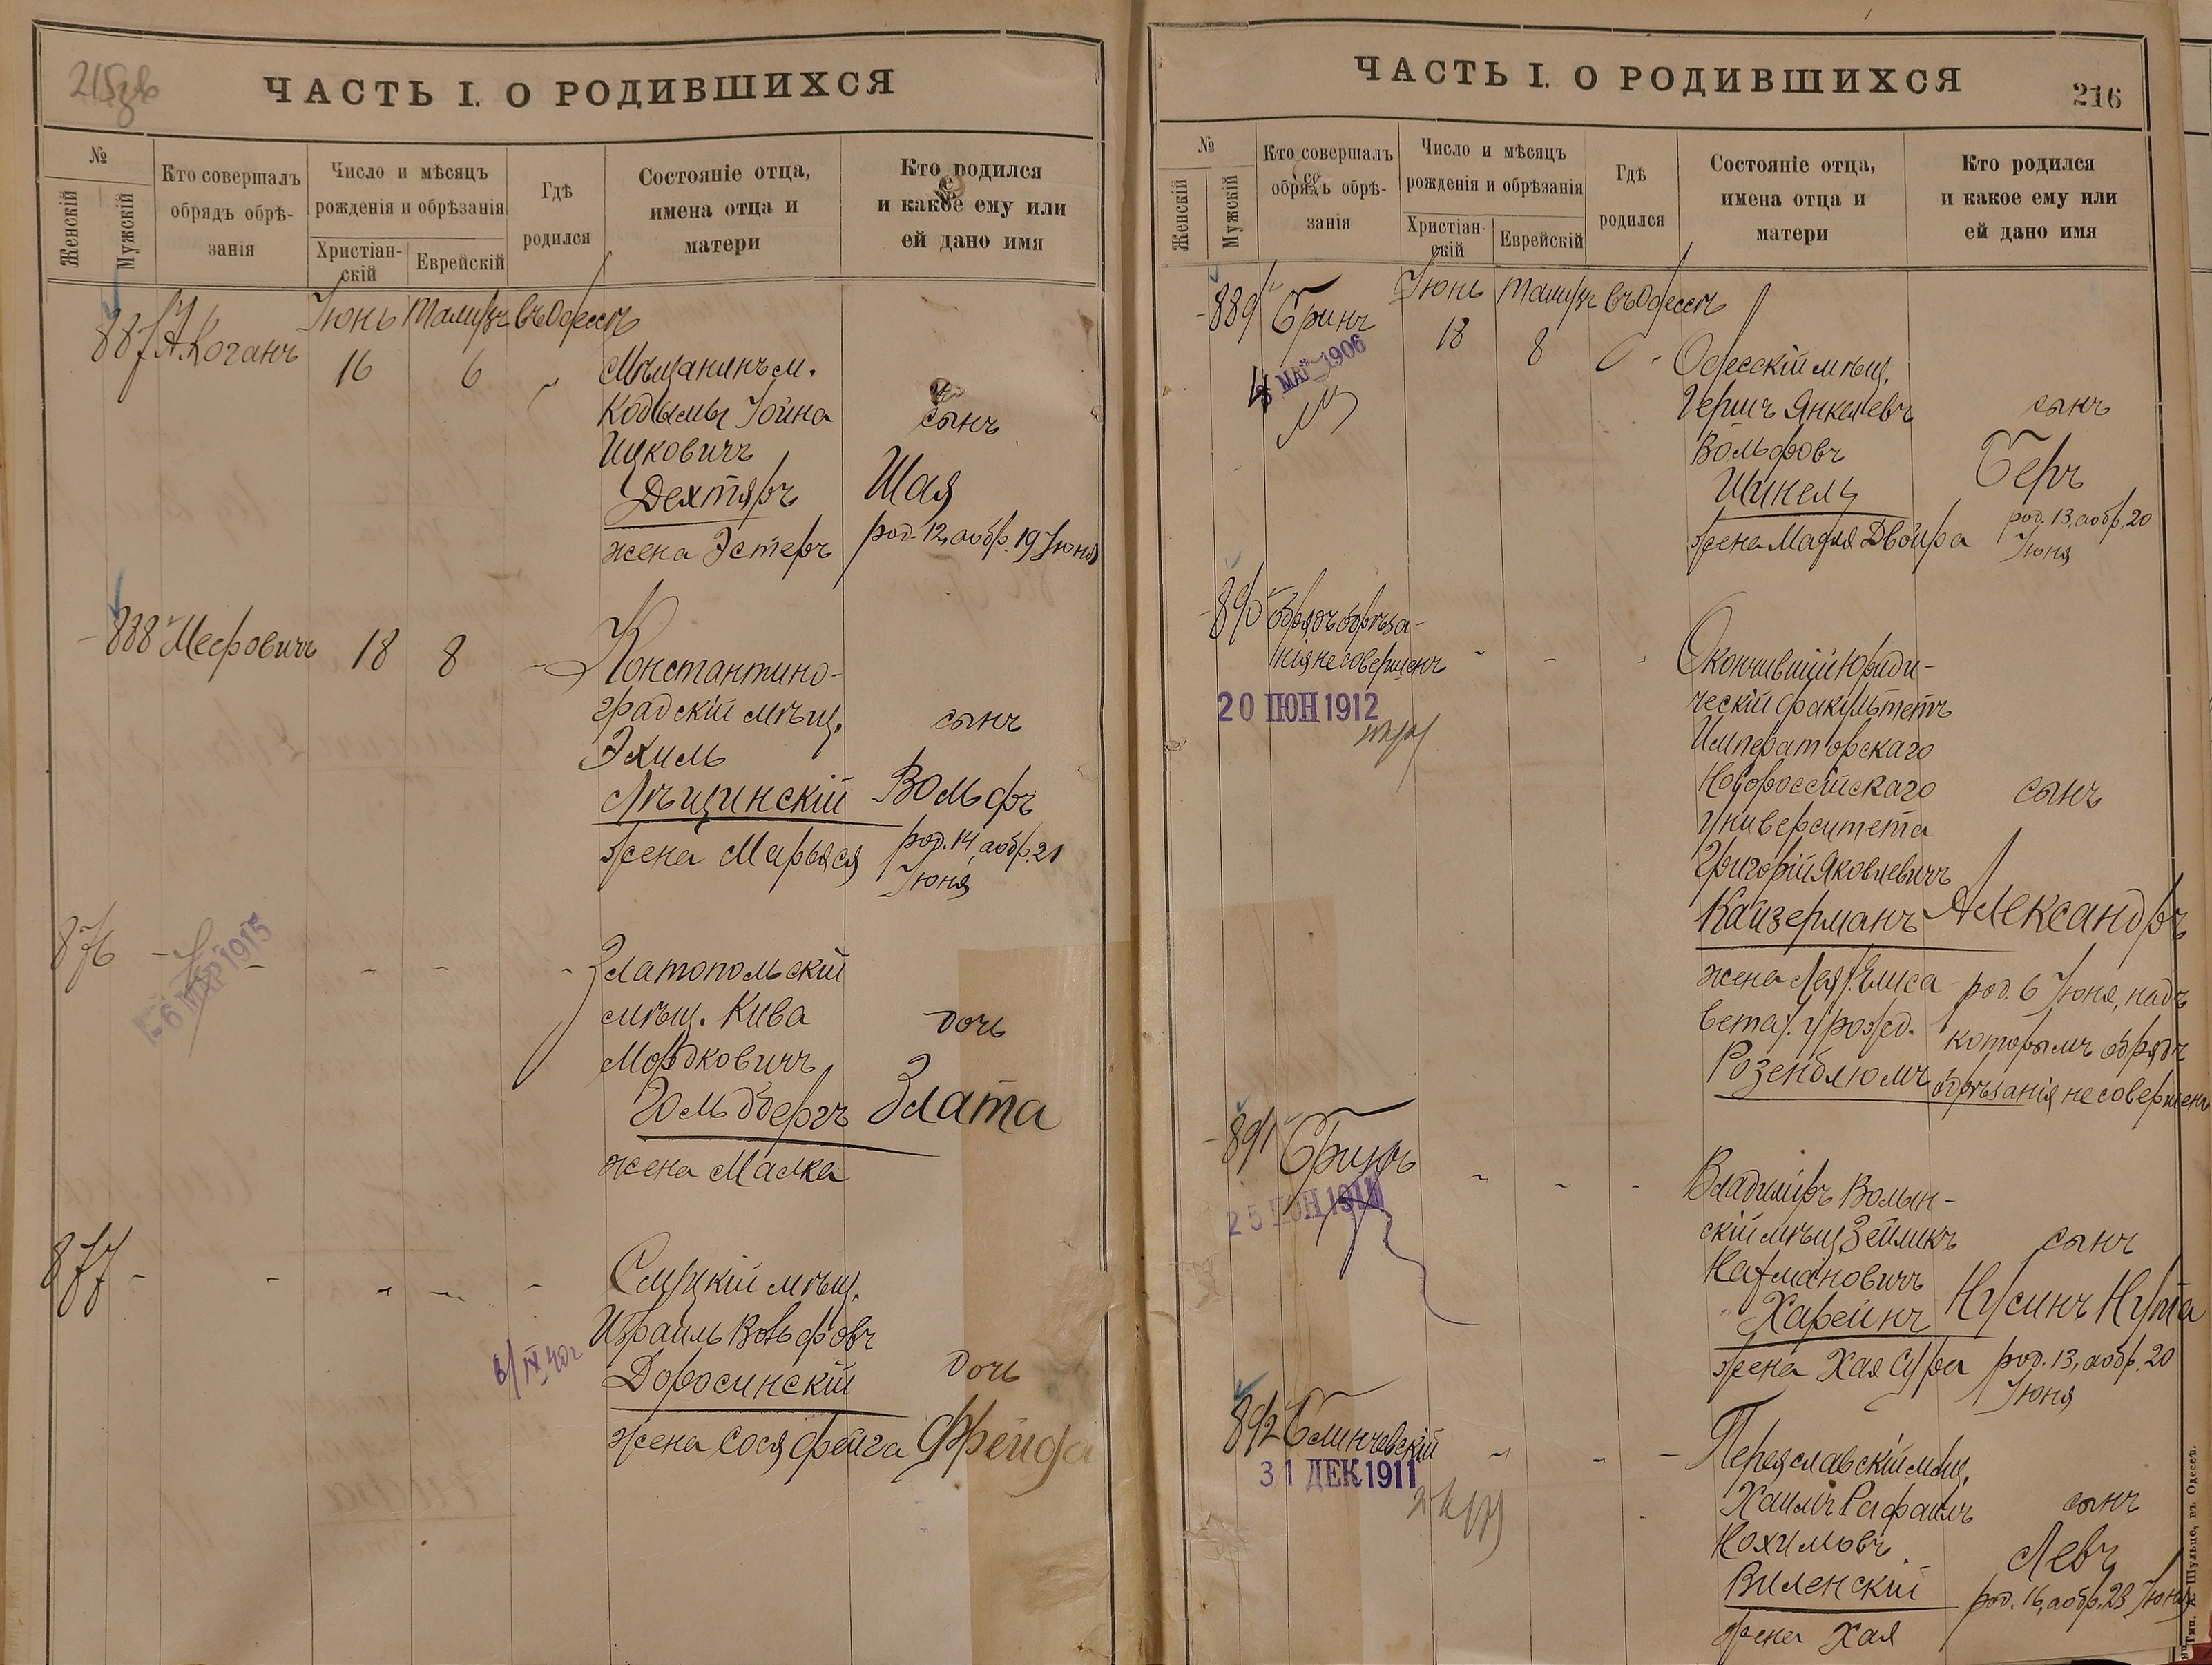 215об
ЧАСТЬ I. О РОДИВШИХСЯ
№
Женскій
Мужскій
Кто совершалъ
обрядъ обрѣ-
занія
Число и мѣсяцъ
рожденія и обрѣзанія
Христіан-
скій
Еврейскій
Гдѣ
родился
Состояніе отца,
имена отца и
матери
Кто родился
и какое ему или
ей дано имя
887 А. Коганъ
Іюнь Тамузъ въ Одессѣ
16 6
Мѣщанинъ м.
Кодымы Іойна
Ицковичъ
Дехтяръ
жена Эстеръ
сынъ
Шая
род. 12, а обр. 19 Іюня
888 Мееровичъ 18 8 -
Константино-
градскій мѣщ.
Эхиль
Лѣщинскій
жена Марьяся
сынъ
Вольфъ
род. 14, а обр. 21
Іюня
876 - - - - -
6 МАР 1915
Златопольскій
мѣщ. Кива
Мордковичъ
Гольдбергъ
жена Малка
дочь
Злата
877 - - - - -
Слуцкій мѣщ.
Израиль Вольфовъ
Доросинскій
жена Сося Фейга
IX 40г
дочь
Фрейда
ЧАСТЬ I. О РОДИВШИХСЯ
216
№
Женскій
Мужскій
Кто совершалъ
обрядъ обрѣ-
занія
Число и мѣсяцъ
рожденія и обрѣзанія
Христіан-
скій
Еврейскій
Гдѣ
родился
Состояніе отца,
имена отца и
матери
Кто родился
и какое ему или
ей дано имя
889 Бринъ
Іюнь Тамузъ въ Одессѣ
18 8
МАЙ 1906
Одесскій мѣщ.
Гершъ Янкелевъ
Вольфовъ
Шинель
жена Маля Двойра
сынъ
Беръ
род. 13, а обр. 20
Іюня
890 Обрядъ обрѣза-
нія не совершенъ - - -
20 ІЮН 1912
Окончившій юриди-
ческій факультетъ
Императорскаго
Новороссійскаго
Университета
Григорій Яковлевичъ
Кайзерманъ
жена Лея (Елиса
вета) урожд.
Розенблюмъ
сынъ
Александръ
род. 6 Іюня, надъ
которымъ обрядъ
обрѣзанія не совершенъ
891 Бринъ - - -
25 ІЮН 1911
Владиміръ Волын-
скій мѣщ. Зейликъ
Нахмановичъ
Харейнъ
жена Хая Сура
сынъ
Нусинъ Нута
род. 13, а обр. 20
Іюня
892 Блинчевскій - - -
31 ДЕК 1911
Переяславскій мѣщ.
Хаимъ Рафаилъ
Нохимовъ
Виленскій
жена Хая
сынъ
Левъ
род. 16, а обр. 23 Іюня
Тип. А. Шульце, въ Одессѣ.